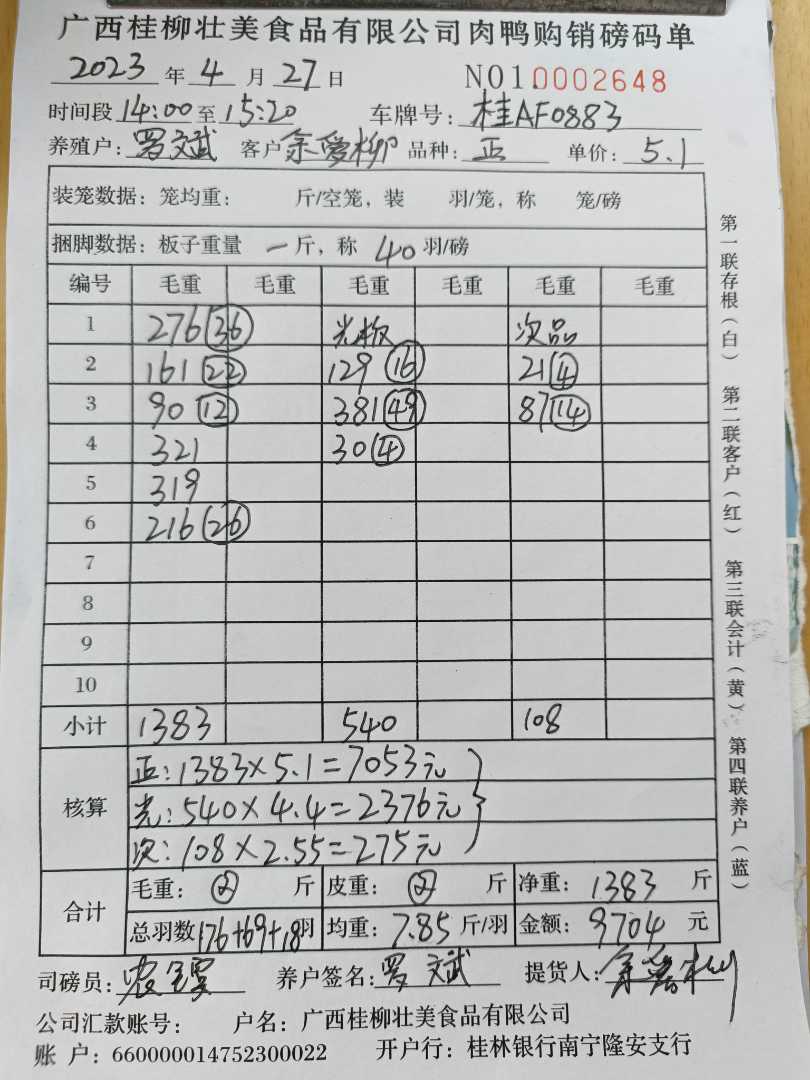 广西桂柳壮美食品有限公司肉鸭购销磅码单
2023 年 4 月 27 日 NO1.0002648
时间段 14:00 至 15:20 车牌号: 桂AF0883
养殖户: 罗文斌 客户 余爱柳 品种: 正 单价: 5.1
装笼数据: 笼均重: 斤/空笼, 装 羽/笼, 称 笼/磅
捆脚数据: 板子重量 一斤, 称 40 羽/磅
编号 毛重 毛重 毛重 毛重 毛重 毛重
1 276 (36) 光板 次品
2 161 (22) 129 (16) 21 (4)
3 90 (12) 381 (49) 87 (14)
4 321 30 (4)
5 319
6 216 (26)
7
8
9
10
小计 1383 540 108
核算
正: 1383×5.1=7053元
光: 540×4.4=2376元
次: 108×2.55=275元
合计
毛重: 斤 皮重: 斤 净重: 1383 斤
总羽数 176+69+18 羽 均重: 7.85 斤/羽 金额: 9704 元
司磅员: 养户签名: 罗文斌 提货人: 余爱柳
公司汇款账号: 户名: 广西桂柳壮美食品有限公司
账 户: 660000014752300022 开户行: 桂林银行南宁隆安支行
第一联存根(白) 第二联客户(红) 第三联会计(黄) 第四联养户(蓝)